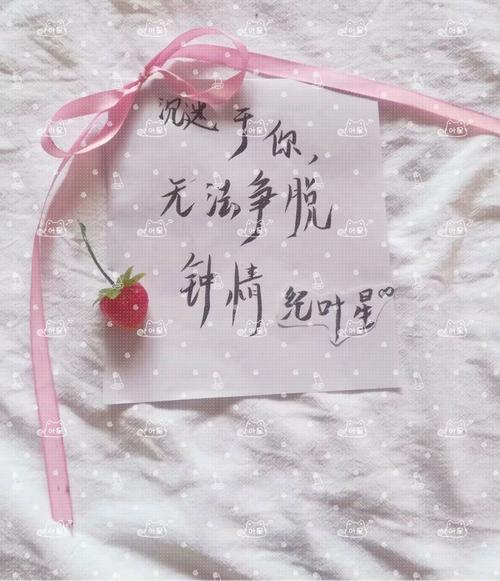 沉迷于你，
无法争脱
钟情 纪叶星